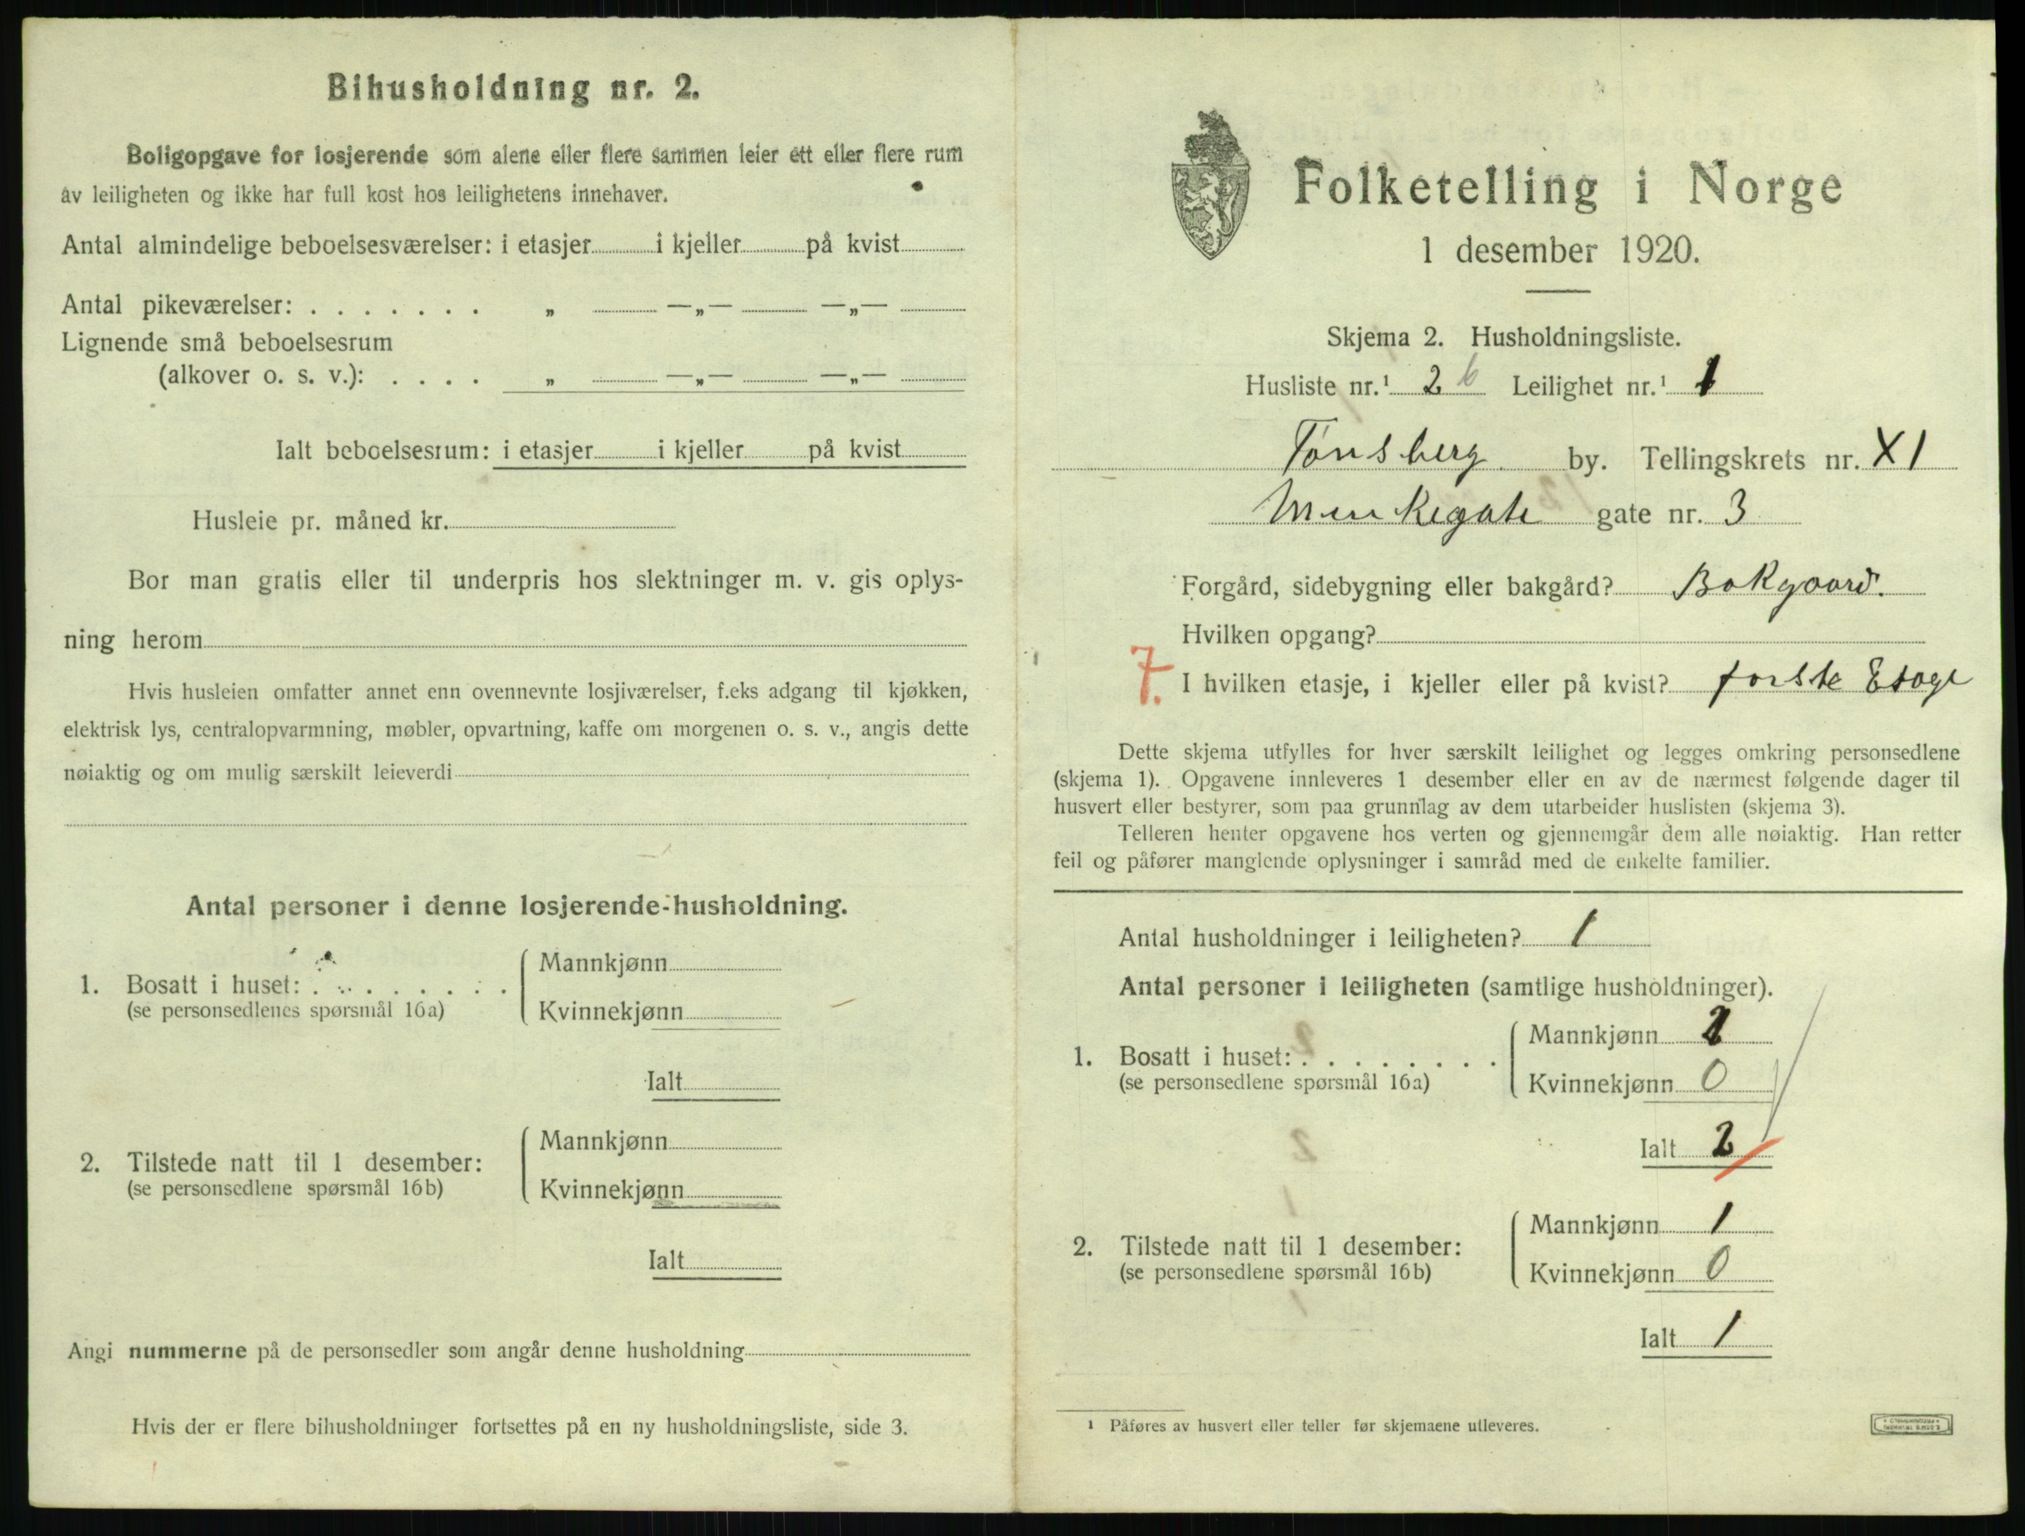 Bihusholdning nr. 2.
Boligopgave for losjerende som alene eller flere sammen leier ett eller flere rum
av leiligheten og ikke har full kost hos leilighetens innehaver.
Antal almindelige beboelsesværelser: i etasjer i kjeller på kvist
Antal pikeværelser: . . . . . . . „ —„— —„—
Lignende små beboelsesrum
(alkover o. s. v.): . . . . „ —„— —„—
Ialt beboelsesrum: i etasjer i kjeller på kvist
Husleie pr. måned kr.
Bor man gratis eller til underpris hos slektninger m. v. gis oplys-
ning herom
Hvis husleien omfatter annet enn ovennevnte losjiværelser, f.eks adgang til kjøkken,
elektrisk lys, centralopvarmning, møbler, opvartning, kaffe om morgenen o. s. v., angis dette
nøiaktig og om mulig særskilt leieverdi
Antal personer i denne losjerende-husholdning.
1. Bosatt i huset: . . . . . . . .
(se personsedlenes spørsmål 16a)
Mannkjønn
Kvinnekjønn
Ialt
2. Tilstede natt til 1 desember:
(se personsedlene spørsmål 16b)
Mannkjønn
Kvinnekjønn
Ialt
Angi nummerne på de personsedler som angår denne husholdning
Hvis der er flere bihusholdninger fortsettes på en ny husholdningsliste, side 3.
Folketelling i Norge
1 desember 1920.
Skjema 2. Husholdningsliste.
Husliste nr.¹ 2 b Leilighet nr.¹ 1
Tønsberg by. Tellingskrets nr. XI
Munkegate gate nr. 3
Forgård, sidebygning eller bakgård? Bakgaard.
Hvilken opgang?
7. I hvilken etasje, i kjeller eller på kvist? første Etage
Dette skjema utfylles for hver særskilt leilighet og legges omkring personsedlene
(skjema 1). Opgavene innleveres 1 desember eller en av de nærmest følgende dager til
husvert eller bestyrer, som paa grunnlag av dem utarbeider huslisten (skjema 3).
Telleren henter opgavene hos verten og gjennemgår dem alle nøiaktig. Han retter
feil og påfører manglende oplysninger i samråd med de enkelte familier.
Antal husholdninger i leiligheten? 1
Antal personer i leiligheten (samtlige husholdninger).
1. Bosatt i huset: . . . . . . . .
(se personsedlene spørsmål 16a)
Mannkjønn 2
Kvinnekjønn 0
Ialt 2
2. Tilstede natt til 1 desember:
(se personsedlene spørsmål 16b)
Mannkjønn 1
Kvinnekjønn 0
Ialt 1
¹ Påføres av husvert eller teller før skjemaene utleveres.